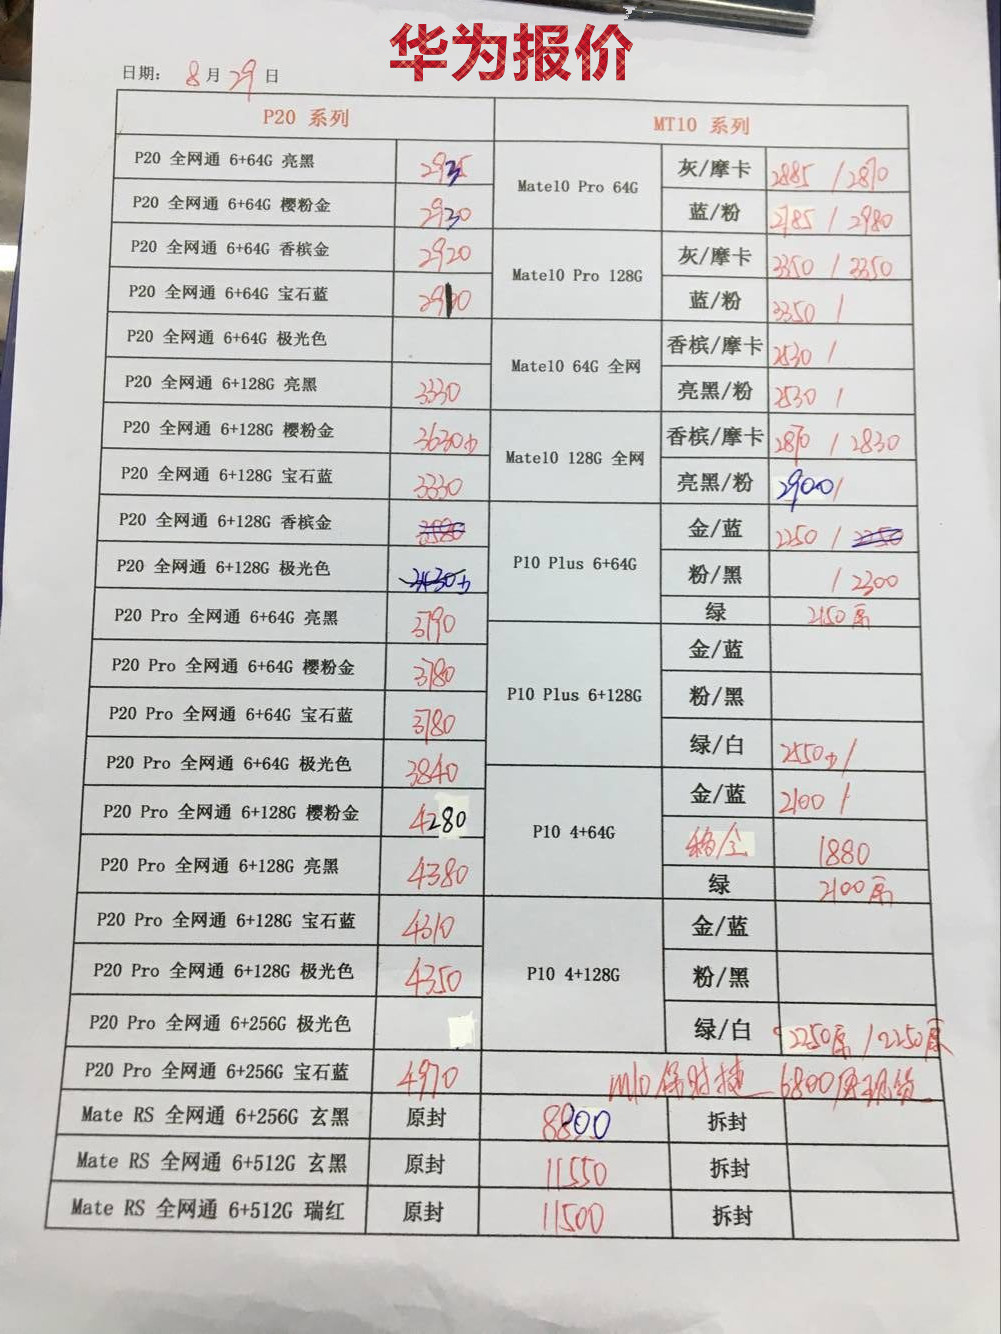 华为报价
日期： 8 月 29 日
P20 系列 MT10 系列
P20 全网通 6+64G 亮黑 2935
P20 全网通 6+64G 樱粉金 2930
P20 全网通 6+64G 香槟金 2920
P20 全网通 6+64G 宝石蓝
P20 全网通 6+64G 极光色
P20 全网通 6+128G 亮黑 3330
P20 全网通 6+128G 樱粉金 3630
P20 全网通 6+128G 宝石蓝 3330
P20 全网通 6+128G 香槟金 3580
P20 全网通 6+128G 极光色
P20 Pro 全网通 6+64G 亮黑 3790
P20 Pro 全网通 6+64G 樱粉金 3780
P20 Pro 全网通 6+64G 宝石蓝 3780
P20 Pro 全网通 6+64G 极光色 3840
P20 Pro 全网通 6+128G 樱粉金 4280
P20 Pro 全网通 6+128G 亮黑 4380
P20 Pro 全网通 6+128G 宝石蓝 4310
P20 Pro 全网通 6+128G 极光色 4350
P20 Pro 全网通 6+256G 极光色
P20 Pro 全网通 6+256G 宝石蓝 4970
Mate10 Pro 64G 灰/摩卡 2885 / 2870
蓝/粉 2985 / 2980
Mate10 Pro 128G 灰/摩卡 3350 / 3350
蓝/粉 3350 /
Mate10 64G 全网 香槟/摩卡 2530 /
亮黑/粉 2530 /
Mate10 128G 全网 香槟/摩卡 2870 / 2830
亮黑/粉 2900 /
P10 Plus 6+64G 金/蓝 2250 / 2250
粉/黑 / 2300
绿 2150原
P10 Plus 6+128G 金/蓝
粉/黑
绿/白 2550 /
P10 4+64G 金/蓝 2100 /
1880
绿 2100原
P10 4+128G 金/蓝
粉/黑
绿/白 2250原 / 2250原
m10保时捷 6800原现货
Mate RS 全网通 6+256G 玄黑 原封 8800 拆封
Mate RS 全网通 6+512G 玄黑 原封 11550 拆封
Mate RS 全网通 6+512G 瑞红 原封 11500 拆封